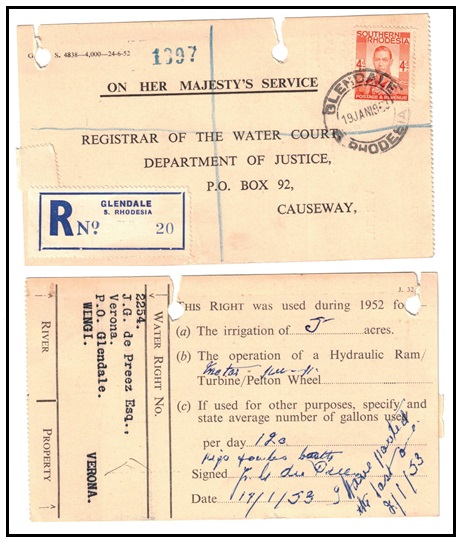 G. S. 4838—4,000—24-6-52
1397
ON HER MAJESTY'S SERVICE
SOUTHERN RHODESIA
POSTAGE & REVENUE
GLENDALE
19 JAN 19
S. RHODESIA
REGISTRAR OF THE WATER COURT,
DEPARTMENT OF JUSTICE,
P.O. BOX 92,
CAUSEWAY,
GLENDALE
S. RHODESIA
R No 20
J. 32
RIVER
PROPERTY
2254.
J.G. de Preez Esq.,
Verona.
P.O. Glendale.
WENGI.
VERONA.
WATER RIGHT NO.
THIS RIGHT was used during 1952 fo
(a) The irrigation of 5 acres.
(b) The operation of a Hydraulic Ram/
Turbine/Pelton Wheel
(c) If used for other purposes, specify and
state average number of gallons used
per day 120
pigs fowles
Signed
Date 19/1/53
I have posted
the last one
2/1/53